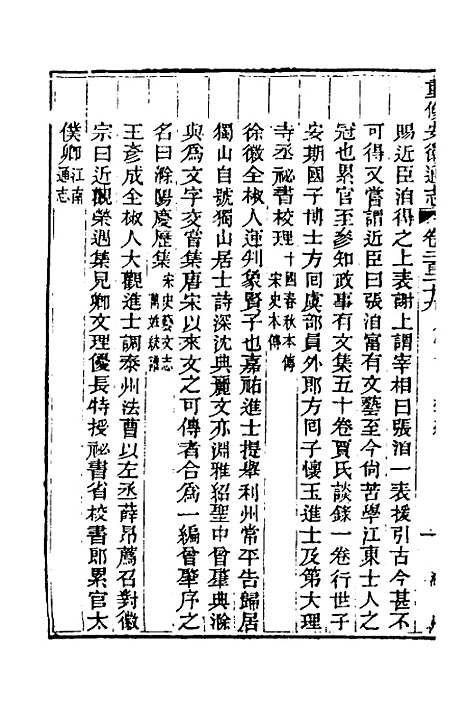 重修安徽通志 卷二百二十九
賜近臣洎得之上表謝上謂宰相曰張洎一表援引古今甚不
可得又嘗謂近臣曰張洎富有文藝至今尙苦學江東士人之
冠也累官至參知政事有文集五十卷賈氏談錄一卷行世子
安期國子博士方回虞部員外郎方回子懷玉進士及第大理
寺丞祕書校理十國春秋本傳宋史本傳
徐徽全椒人運判象賢子也嘉祐進士提舉利州常平告歸居
獨山自號獨山居士詩深沈典麗文亦淵雅紹聖中曾肇典滁
與爲文字交嘗集唐宋以來文之可傳者合爲一編曾肇序之
名曰滁陽慶歷集宋史藝文志萬姓統譜
王彥成全椒人大觀進士調泰州法曹以左丞薛昂薦召對徽
宗曰近覩榮遇集見卿文理優長特授祕書省校書郎累官太
僕卿江南通志